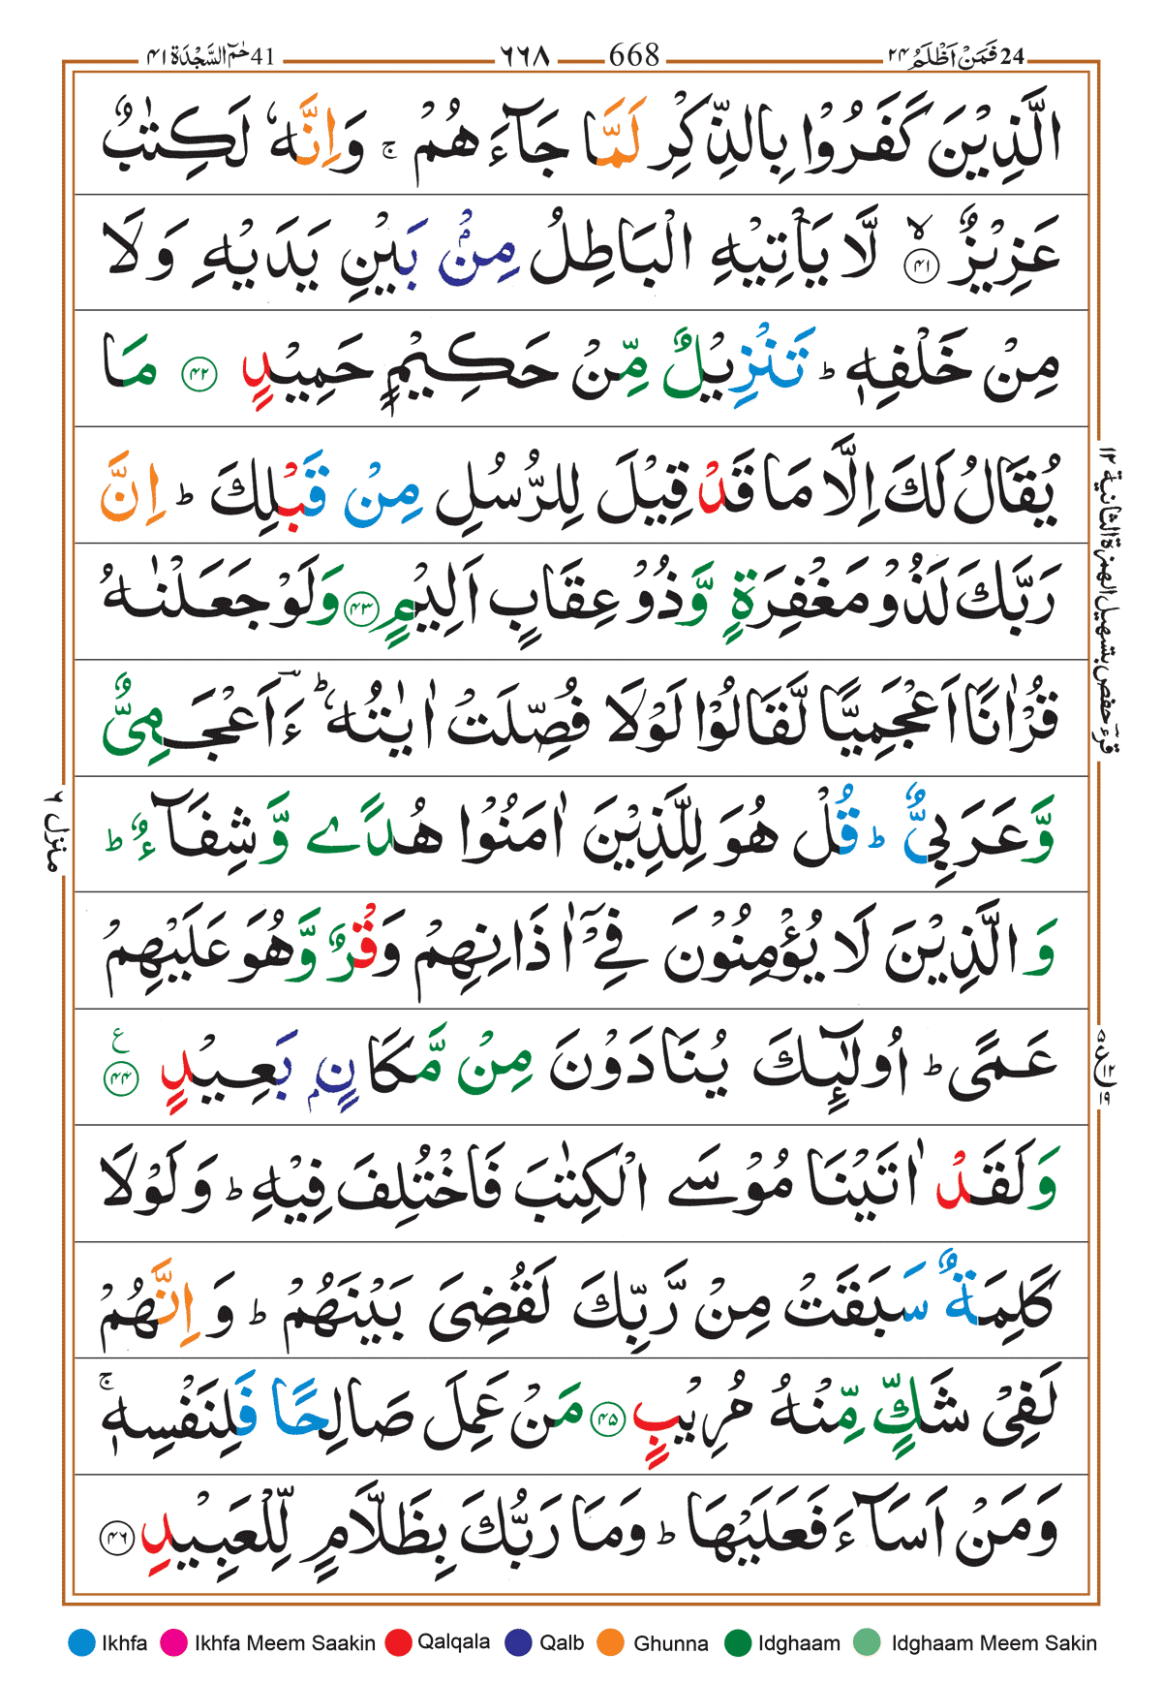 24 فَمَنْ اَظْلَمُ ٢٤ 668 ٦٦٨ 41 حٰمٓ السَّجْدَة ٤١
الَّذِيْنَ كَفَرُوْا بِالذِّكْرِ لَمَّا جَآءَ هُمْ ۚ وَاِنَّهٗ لَكِتٰبٌ
عَزِيْزٌ ۙ ﴿٤١﴾ لَّا يَاْتِيْهِ الْبَاطِلُ مِنْۢ بَيْنِ يَدَيْهِ وَلَا
مِنْ خَلْفِهٖ ؕ تَنْزِيْلٌ مِّنْ حَكِيْمٍ حَمِيْدٍ ﴿٤٢﴾ مَا
يُقَالُ لَكَ اِلَّا مَا قَدْ قِيْلَ لِلرُّسُلِ مِنْ قَبْلِكَ ؕ اِنَّ
رَبَّكَ لَذُوْ مَغْفِرَةٍ وَّذُوْ عِقَابٍ اَلِيْمٍ ﴿٤٣﴾ وَلَوْ جَعَلْنٰهُ
قُرْاٰنًا اَعْجَمِيًّا لَّقَالُوْا لَوْلَا فُصِّلَتْ اٰيٰتُهٗ ؕ ءَاَعْجَمِىٌّ
وَّعَرَبِىٌّ ؕ قُلْ هُوَ لِلَّذِيْنَ اٰمَنُوْا هُدًے وَّشِفَآءٌ ؕ
وَ الَّذِيْنَ لَا يُؤْمِنُوْنَ فِىْۤ اٰذَانِهِمْ وَقْرٌ وَّهُوَ عَلَيْهِمْ
عَمًى ؕ اُولٰٓئِكَ يُنَادَوْنَ مِنْ مَّكَانٍۢ بَعِيْدٍ ﴿٤٤﴾ ع
وَلَقَدْ اٰتَيْنَا مُوْسَے الْكِتٰبَ فَاخْتُلِفَ فِيْهِ ؕ وَلَوْلَا
كَلِمَةٌ سَبَقَتْ مِنْ رَّبِّكَ لَقُضِىَ بَيْنَهُمْ ؕ وَ اِنَّهُمْ
لَفِىْ شَكٍّ مِّنْهُ مُرِيْبٍ ﴿٤٥﴾ مَنْ عَمِلَ صَالِحًا فَلِنَفْسِهٖ ۚ
وَمَنْ اَسَآءَ فَعَلَيْهَا ؕ وَمَا رَبُّكَ بِظَلَّامٍ لِّلْعَبِيْدِ ﴿٤٦﴾
قرءَ حفص بتسهيل الهمزة الثانية ١٢
منزل ٦
Ikhfa Ikhfa Meem Saakin Qalqala Qalb Ghunna Idghaam Idghaam Meem Sakin